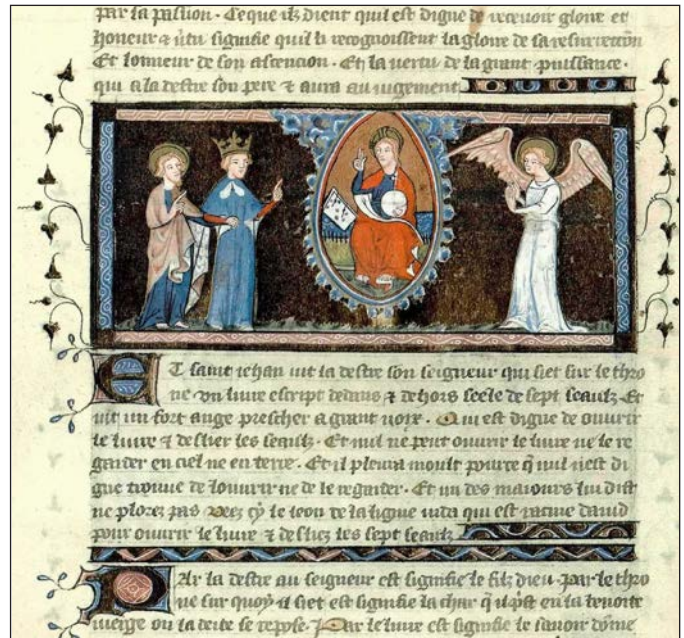 par la passion. Ce que ilz dient quil est digne de recevoir glorie et
honeur & vtu signifie quil li recognoissent la glorie de sa resurrection
Et lonneur de son ascencion. Et la vertu de la grant puissance.
qui a la destre son pere & aura au iugement
ET saint iehan vit la destre son seigneur qui siet sur le thro
ne vn livre escript dedans & dehors seele de sept seaulz. Et
vit un fort ange prescher a grant voix. Qui est digne de ouurir
le liure & deslier les seaulz. Et nul ne peut ouurir le liure ne le re
garder en ciel ne en terre. Et il pleura moult pource q nul nest di
gne trouue de louurir ne de le regarder. Et un des maiours lui dist
ne plorez pas veez cy le leon de la ligne iuda qui est racine dauid
pour ouurir le liure & desliez les sept seaulz
PAr la destre au seigneur est signifie le filz dieu. par le thro
ne sur quoy il siet est signifie la char q il pst en la benoite
vierge ou la deite se repose. Par le liure est signifie le sauoir dome